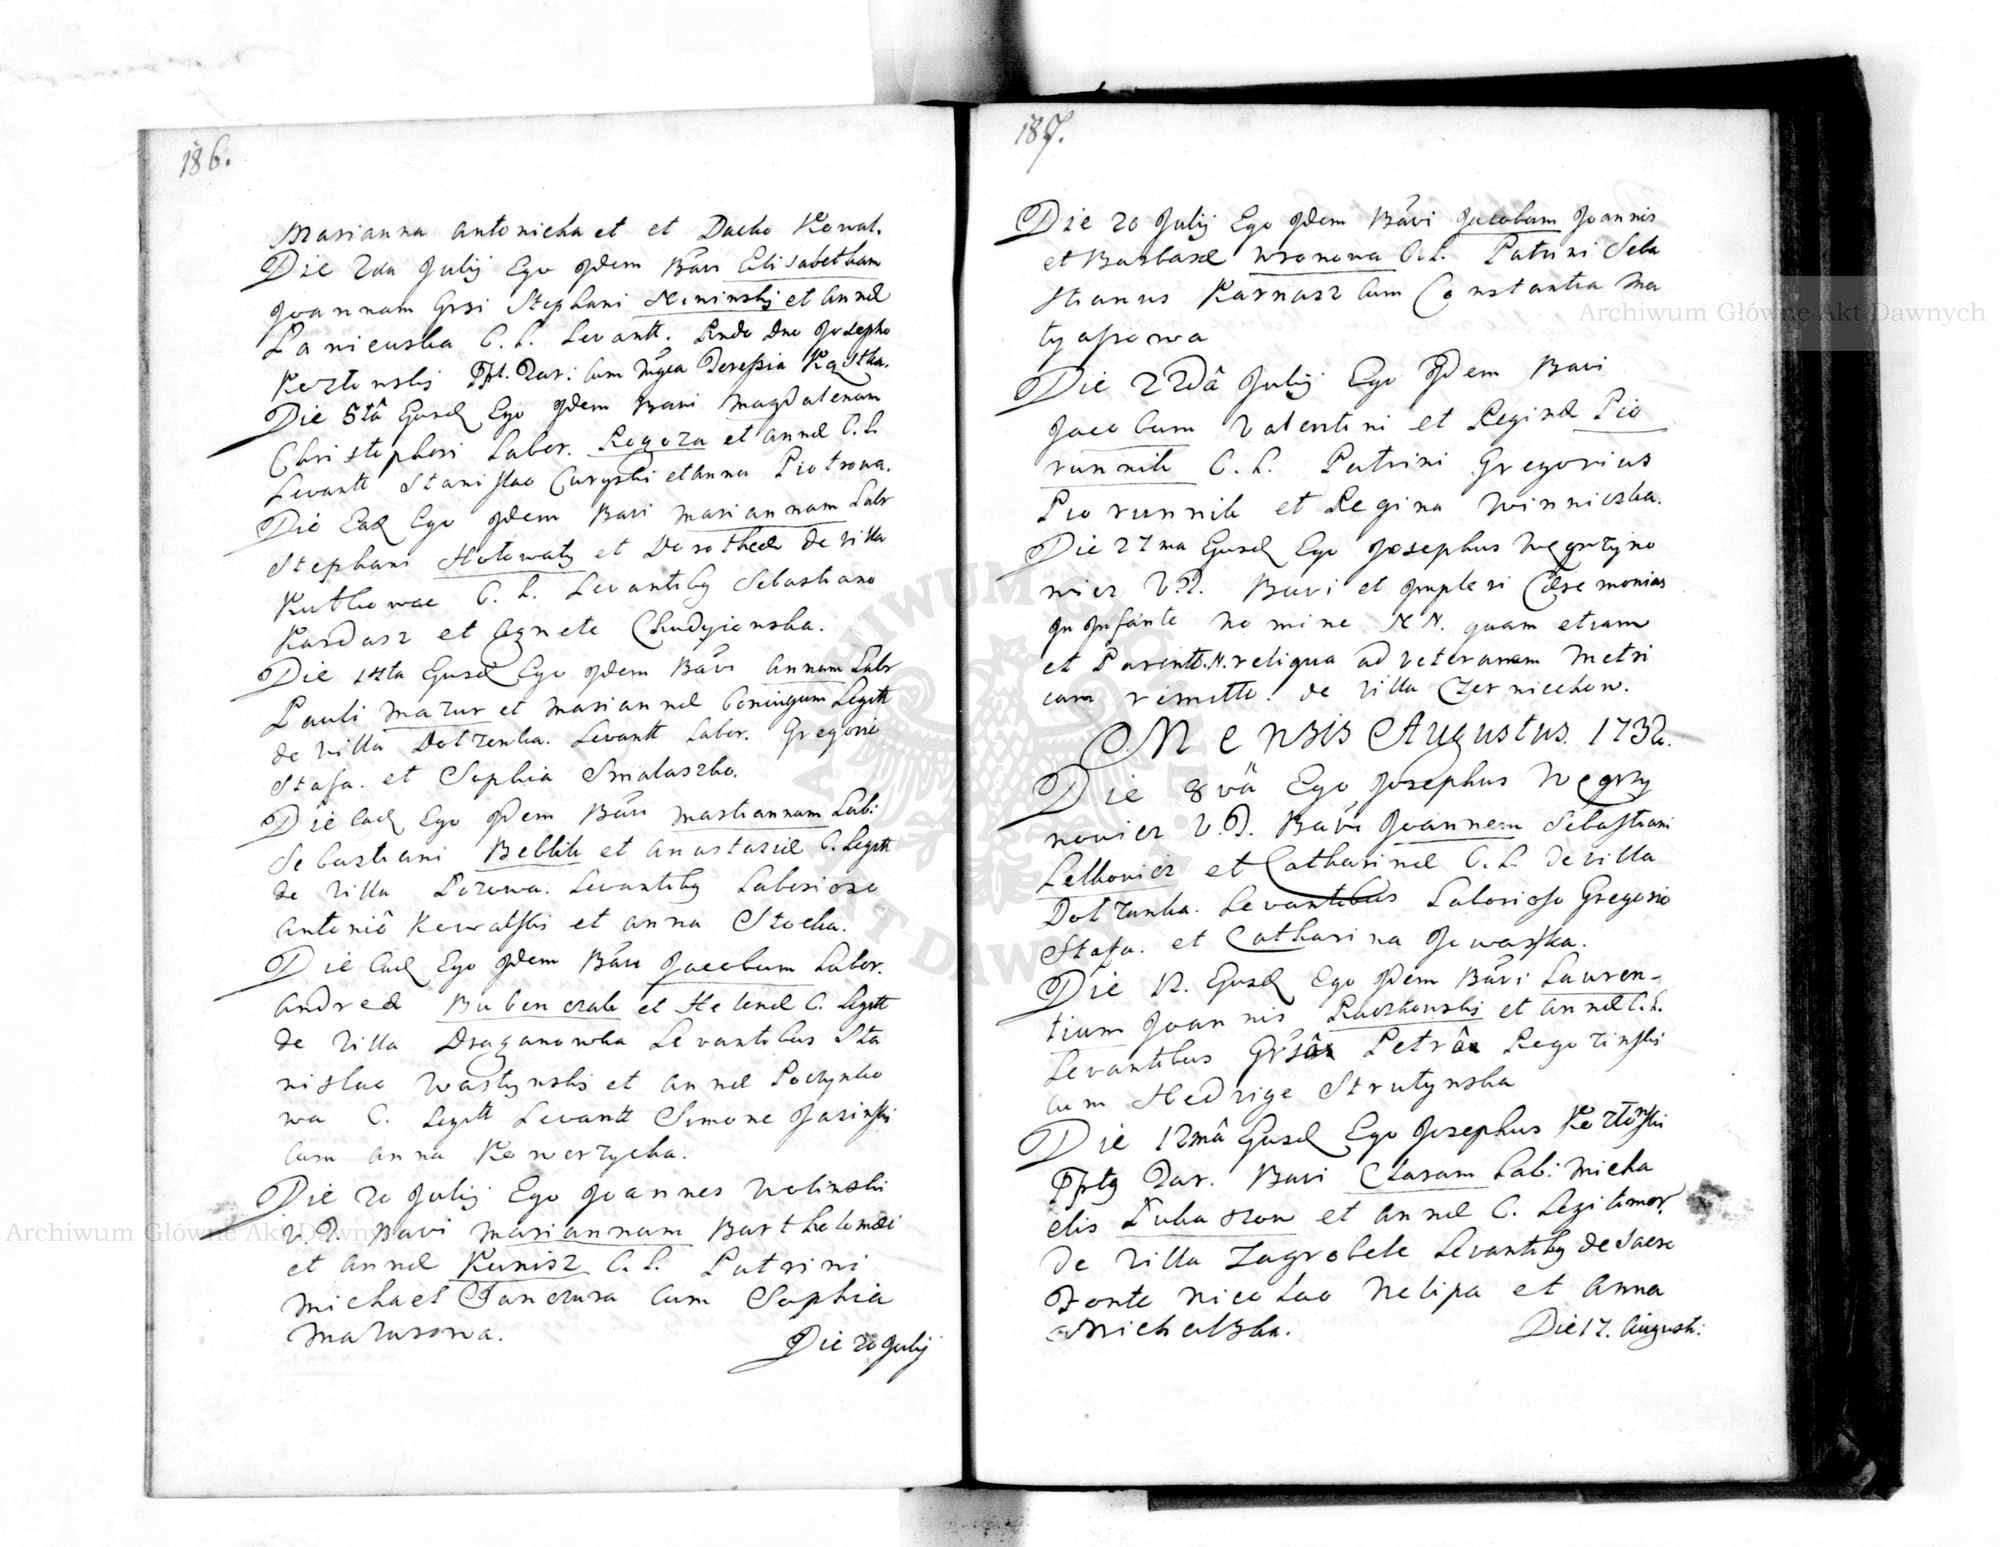 186.
Marianna Antonicha et et Dacko Kowal.
Die 2da Julij Ego Idem Bavi Elisabetham
Joannam Grsi Stephani Neminskij et Annae
Laniewska C. L. Levantt. Rndo Dno Josepho
Kozlenskij Ppt. Tar: cum Mgca Teressia
Die 5tâ Ejusd Ego Idem Bavi Magdalenam
Christophori Labor. Rogoza et Annae C. L.
Levantt Stanislao Curyski et Anna Piotrowa.
Die Ead Ego Idem Bavi Mariannam Labr
Stephani Hołowaty et Dorotheae de Villa
Kutkowae C. L. Levantibg Sebastiano
Kardasz et Agnete Chudyjowska.
Die 14ta Ejusd Ego Idem Bavi Annam Labr
Pauli Mazur et Mariannae Conjugum Legitt
de Villa Dolzanka. Levantt Labor. Gregorio
Stafa. et Sophia Smalaszko.
Die Ead Ego Idem Bavi Martiannam Lab:
Sebastiani Beblik et Anastasiae C. Legitt
de Villa Pozowa. Levantibg Laborioso
Antoniô Kowalski et Anna Stocka.
Die Ead Ego Idem Bavi Jacobum Labor.
Andreae Bubenczak et Helenae C. Legitt
de Villa Draganowka Levantibus Sta
nislao Wastynskj et Annae Poctynko
wa C. Legitt Levantt Simone Jasinski
cum Anna Kowerzycha.
Die 20 Julij Ego Joannes Wolinski
V. P. Bavi Mariannam Bartholomaei
et Annae Kunisz C. L. Patrini
Michael Janczura cum Sophia
Mazurowa.
Die 20 Julij
187.
Die 20 Julij Ego Idem Bavi Jacobum Joannis
et Barbarae Wronowa C. L. Patrini Seba
stianus Karnasz cum Constantia Ma
tyasowa
Die 22dâ Julij Ego Idem Bavi
Jacobum Valentini et Reginae Pio
runnik C. L. Patrini Gregorius
Piorunnik et Regina Winniczka.
Die 27ma Ejusd Ego Josephus Węgrzyno
wicz V. P. Bavi et Implevi Caeremonias
In Infante Nomine N N. quam etiam
et Parentt. N. reliqua ad veteranem Metri
cam remitto. de Villa Czerniechow.
Mensis Augustus. 1732.
Die 8vâ Ego Josephus Węgrzy
nowicz V. P. Bavi Joannem Sebastiani
Letkowicz et Catharinae C. L. de Villa
Dolzanka. Levantibus Laborioso Gregorio
Stafa. et Catharina Jowaska.
Die 12. Ejusd Ego Idem Bavi Lauren-
tium Joannis Raczkowskj et Annae C. L.
Levantibus Petrô Rogozinski
cum Hedvige Strutynska
Die 12mâ Ejusd Ego Josephus Kozłenski
Pptg Tar. Bavi Claram Lab: Micha
elis Lukaszow et Annae C. Legitimor.
de Villa Zagrobele Levantibg de Sacro
Fonte Nicolao Nelipa et Anna
Michalska.
Die 17. August:
Archiwum Główne Akt Dawnych
Archiwum Główne Akt Dawnych
ARCHIWUM GŁÓWNE AKT DAWNYCH